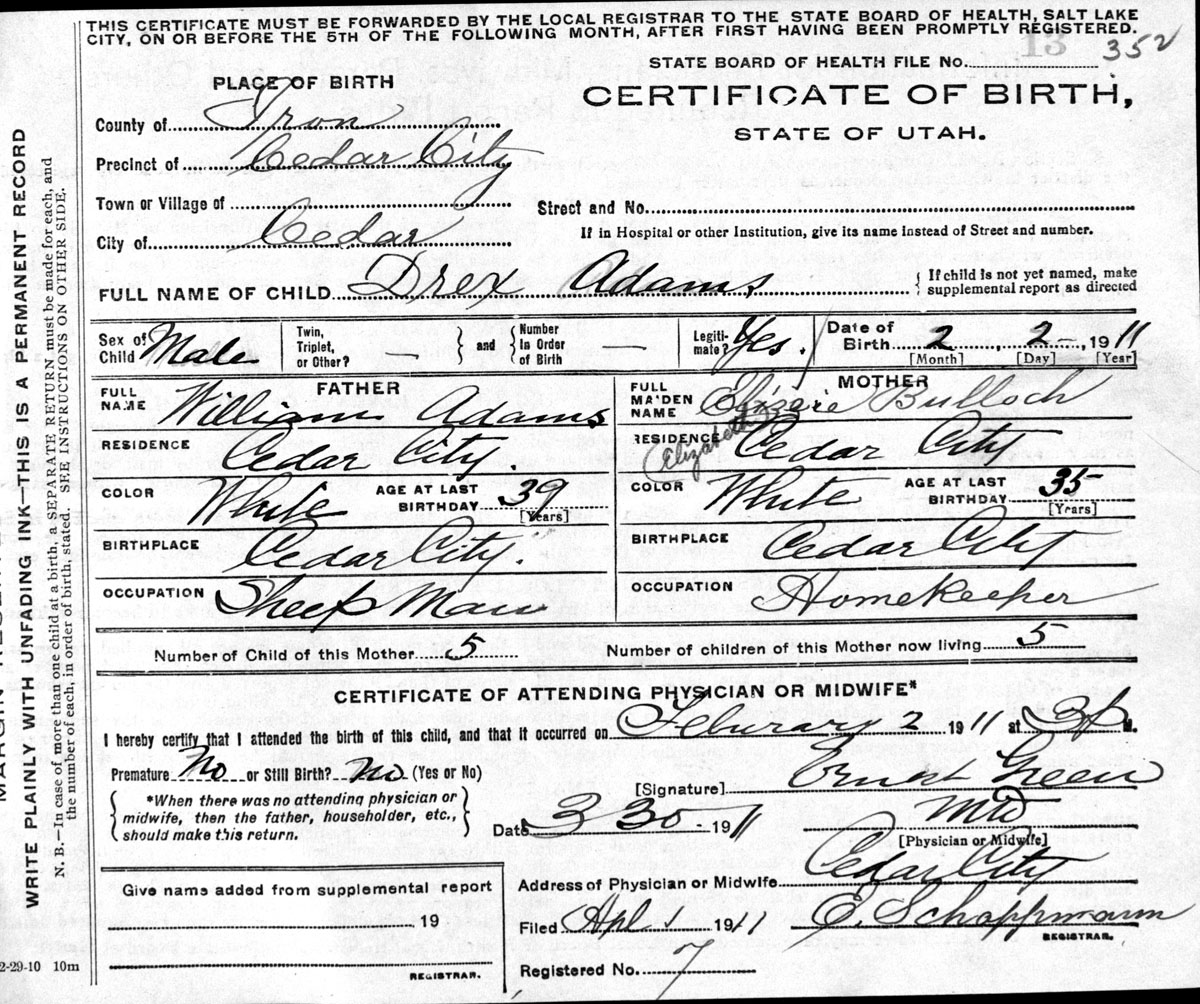 THIS CERTIFICATE MUST BE FORWARDED BY THE LOCAL REGISTRAR TO THE STATE BOARD OF HEALTH, SALT LAKE
CITY, ON OR BEFORE THE 5TH OF THE FOLLOWING MONTH, AFTER FIRST HAVING BEEN PROMPTLY REGISTERED.
13 352
STATE BOARD OF HEALTH FILE No.
PLACE OF BIRTH
CERTIFICATE OF BIRTH,
STATE OF UTAH.
County of Iron
Precinct of Cedar City
Town or Village of
Street and No.
City of Cedar
If in Hospital or other Institution, give its name instead of Street and number.
FULL NAME OF CHILD Drex Adams { If child is not yet named, make
supplemental report as directed
Sex of Child Male
Twin, Triplet, or Other? — } and { Number In Order of Birth —
Legiti-mate? Yes.
Date of Birth 2 2 , 1911
[Month] [Day] [Year]
FATHER
FULL NAME William Adams
RESIDENCE Cedar City.
COLOR White AGE AT LAST BIRTHDAY 39 [Years]
BIRTHPLACE Cedar City.
OCCUPATION Sheep Man
MOTHER
FULL MAIDEN NAME Bulloch
(Elizabeth)
RESIDENCE Cedar City
COLOR White AGE AT LAST BIRTHDAY 35 [Years]
BIRTHPLACE Cedar City
OCCUPATION Homekeeper
Number of Child of this Mother 5 Number of children of this Mother now living 5
CERTIFICATE OF ATTENDING PHYSICIAN OR MIDWIFE*
I hereby certify that I attended the birth of this child, and that it occurred on Feburary 2 1911 at 3p M.
Premature No or Still Birth? No (Yes or No)
[Signature] Ernest Green
{ *When there was no attending physician or
midwife, then the father, householder, etc.,
should make this return. }
Date 3 30 - 1911
MD
[Physician or Midwife]
Address of Physician or Midwife Cedar City
Filed Apl 1 1911 E. Schoppmann
REGISTRAR.
Registered No. 7
Give name added from supplemental report
19
REGISTRAR.
2-29-10 10m
WRITE PLAINLY WITH UNFADING INK—THIS IS A PERMANENT RECORD
N. B.—In case of more than one child at a birth, a SEPARATE RETURN must be made for each, and
the number of each, in order of birth, stated. SEE INSTRUCTIONS ON OTHER SIDE.